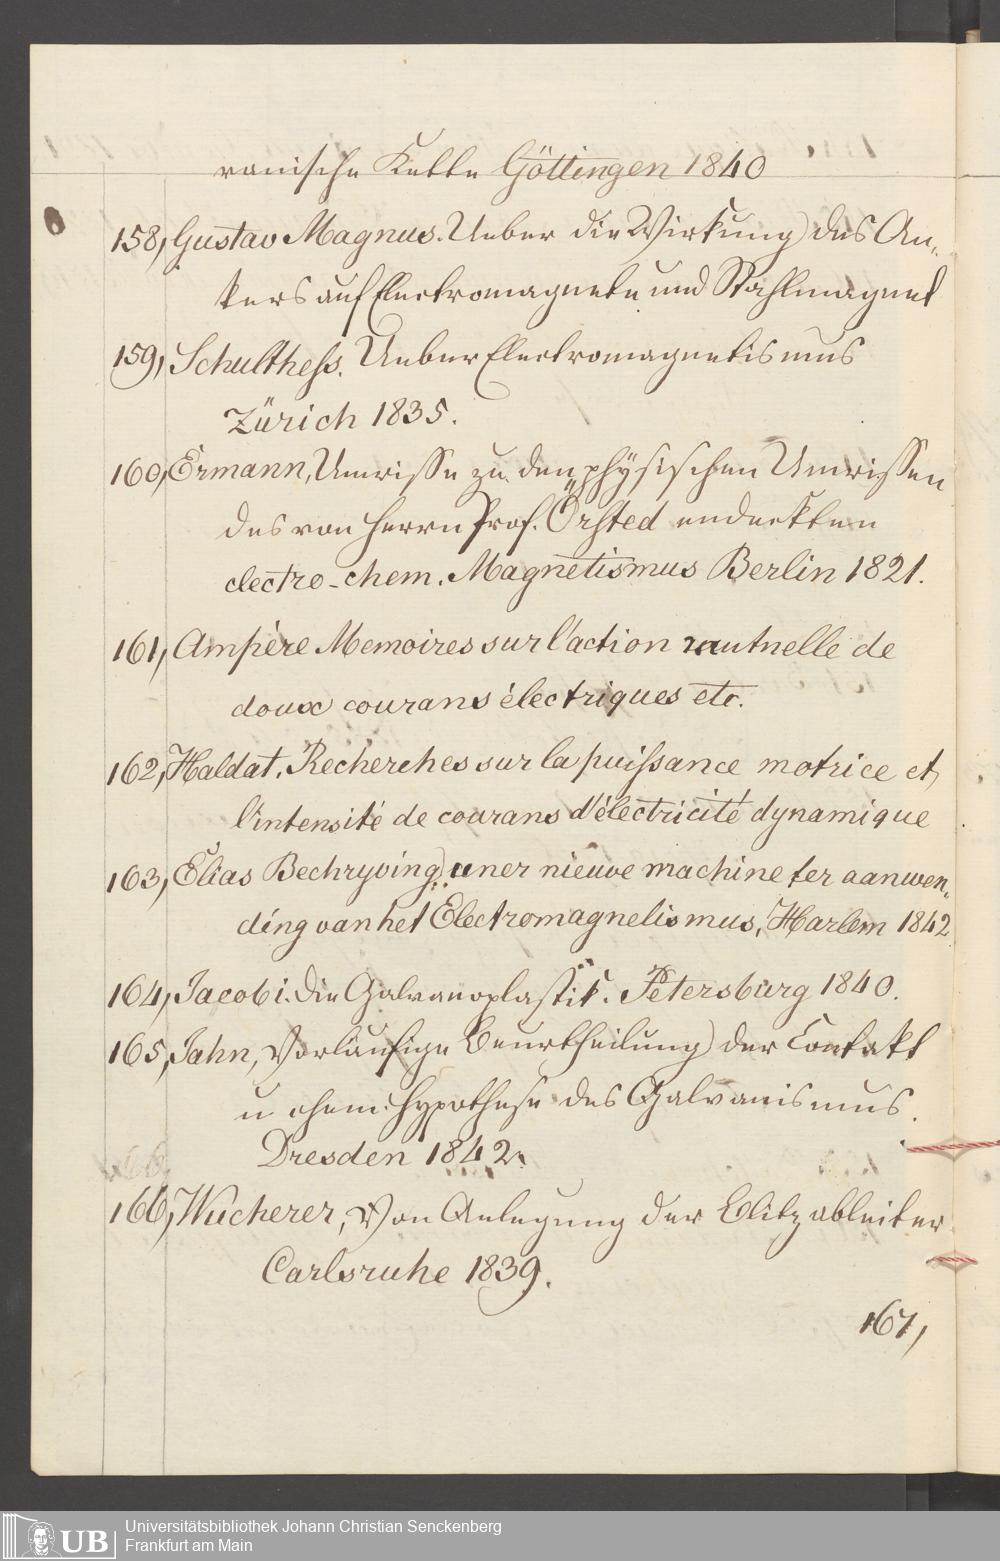 vanische Kette Göttingen 1840
158, Gustav Magnus. Ueber die Wirkung des An-
kers auf Electromagnete und Stahlmagnet
159, Schulthess. Ueber Electromagnetismus
Zürich 1835.
160, Ermann, Umrisse zu den physischen Umrissen
des von Herrn Prof. Örsted endeckten
electro-chem. Magnetismus Berlin 1821.
161, Ampère Memoires sur l'action mutnelle de
doux courans électriques etc.
162, Haldat. Recherches sur la puissance motrice et
l'intensité de courans d'électricité dynamique
163, Elias Bechryving uner nieuve machine ter aanwen-
ding van het Electromagnelismus, Harlem 1842
164, Jacobi. die Galvanoplastik. Petersburg 1840.
165, Jahn, Vorläufige Beurtheilung der Contakt
u chem. Hypothese des Galvanismus.
Dresden 1842.
166, Wucherer, Von Anlegung der Blitzableiter
Carlsruhe 1839.
167,
UB
Universitätsbibliothek Johann Christian Senckenberg
Frankfurt am Main